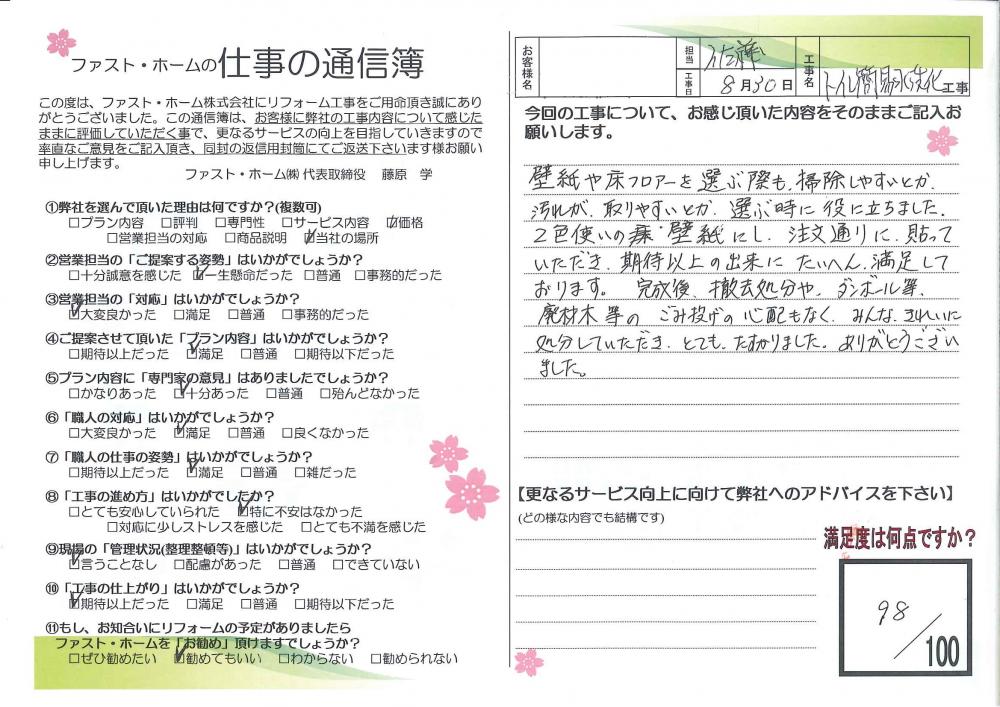 ファスト・ホームの仕事の通信簿
この度は、ファスト・ホーム株式会社にリフォーム工事をご用命頂き誠にあり
がとうございました。この通信簿は、お客様に弊社の工事内容について感じた
ままに評価していただく事で、更なるサービスの向上を目指していきますので
率直なご意見をご記入頂き、同封の返信用封筒にてご返送下さいます様お願い
申し上げます。
ファスト・ホーム㈱ 代表取締役 藤原 学
①弊社を選んで頂いた理由は何ですか?(複数可)
□プラン内容 □評判 □専門性 □サービス内容 ☑価格
□営業担当の対応 □商品説明 ☑当社の場所
②営業担当の「ご提案する姿勢」はいかがでしょうか?
□十分誠意を感じた ☑一生懸命だった □普通 □事務的だった
③営業担当の「対応」はいかがでしょうか?
☑大変良かった □満足 □普通 □事務的だった
④ご提案させて頂いた「プラン内容」はいかがでしょうか?
□期待以上だった ☑満足 □普通 □期待以下だった
⑤プラン内容に「専門家の意見」はありましたでしょうか?
□かなりあった ☑十分あった □普通 □殆んどなかった
⑥「職人の対応」はいかがでしょうか?
□大変良かった ☑満足 □普通 □良くなかった
⑦「職人の仕事の姿勢」はいかがでしょうか?
□期待以上だった ☑満足 □普通 □雑だった
⑧「工事の進め方」はいかがでしたか?
□とても安心していられた ☑特に不安はなかった
□対応に少しストレスを感じた □とても不満を感じた
⑨現場の「管理状況(整理整頓等)」はいかがでしょうか?
☑言うことなし □配慮があった □普通 □できていない
⑩「工事の仕上がり」はいかがでしょうか?
☑期待以上だった □満足 □普通 □期待以下だった
⑪もし、お知合いにリフォームの予定がありましたら
ファスト・ホームを「お勧め」頂けますでしょうか?
□ぜひ勧めたい ☑勧めてもいい □わからない □勧められない
お客様名
担当 佐藤
工事日 8月30日
工事名 トイレ簡易水洗化工事
今回の工事について、お感じ頂いた内容をそのままご記入お
願いします。
壁紙や床フロアーを選ぶ際も、掃除しやすいとか、
汚れが、取りやすいとか、選ぶ時に役に立ちました。
2色使いの壁紙にし、注文通りに、貼って
いただき、期待以上の出来に たいへん、満足して
おります。 完成後、撤去処分や、ダンボール等、
廃材木等の ごみ投げの心配もなく、みんな、きれいに
処分していただき、とても、たすかりました。ありがとうござい
ました。
【更なるサービス向上に向けて弊社へのアドバイスを下さい】
(どの様な内容でも結構です)
満足度は何点ですか?
98/100